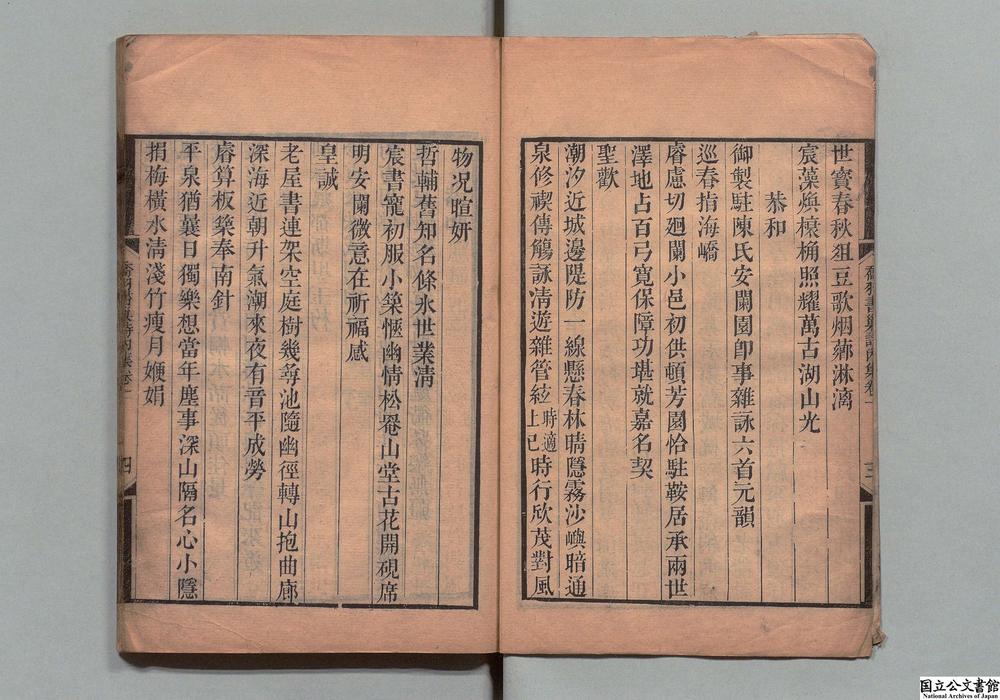 世寶春秋俎豆歌烟蘤淋漓
宸藻煥榱桷照耀萬古湖山光
恭和
御製駐陳氏安瀾園卽事雜詠六首元韻
巡春指海嶠
睿慮切廻瀾小邑初供頓芳園恰駐鞍居承兩世
澤地占百弓寬保障功堪就嘉名契
聖歡
潮汐近城邊隄防一線懸春林晴隱霧沙嶼暗通
泉修禊傳觴詠淸遊雜管絃時適上巳時行欣茂對風
三
物況暄妍
哲輔舊知名條氷世業淸
宸書寵初服小築愜幽情松罨山堂古花開硯席
明安瀾微意在祈福感
皇誠
老屋書連架空庭樹幾尋池隨幽徑轉山抱曲廊
深海近朝升氣潮來夜有音平成勞
睿算板築奉南針
平泉猶曩日獨樂想當年塵事深山隔名心小隱
捐梅橫水淸淺竹瘦月㛹娟
四
国立公文書館
National Archives of Japan